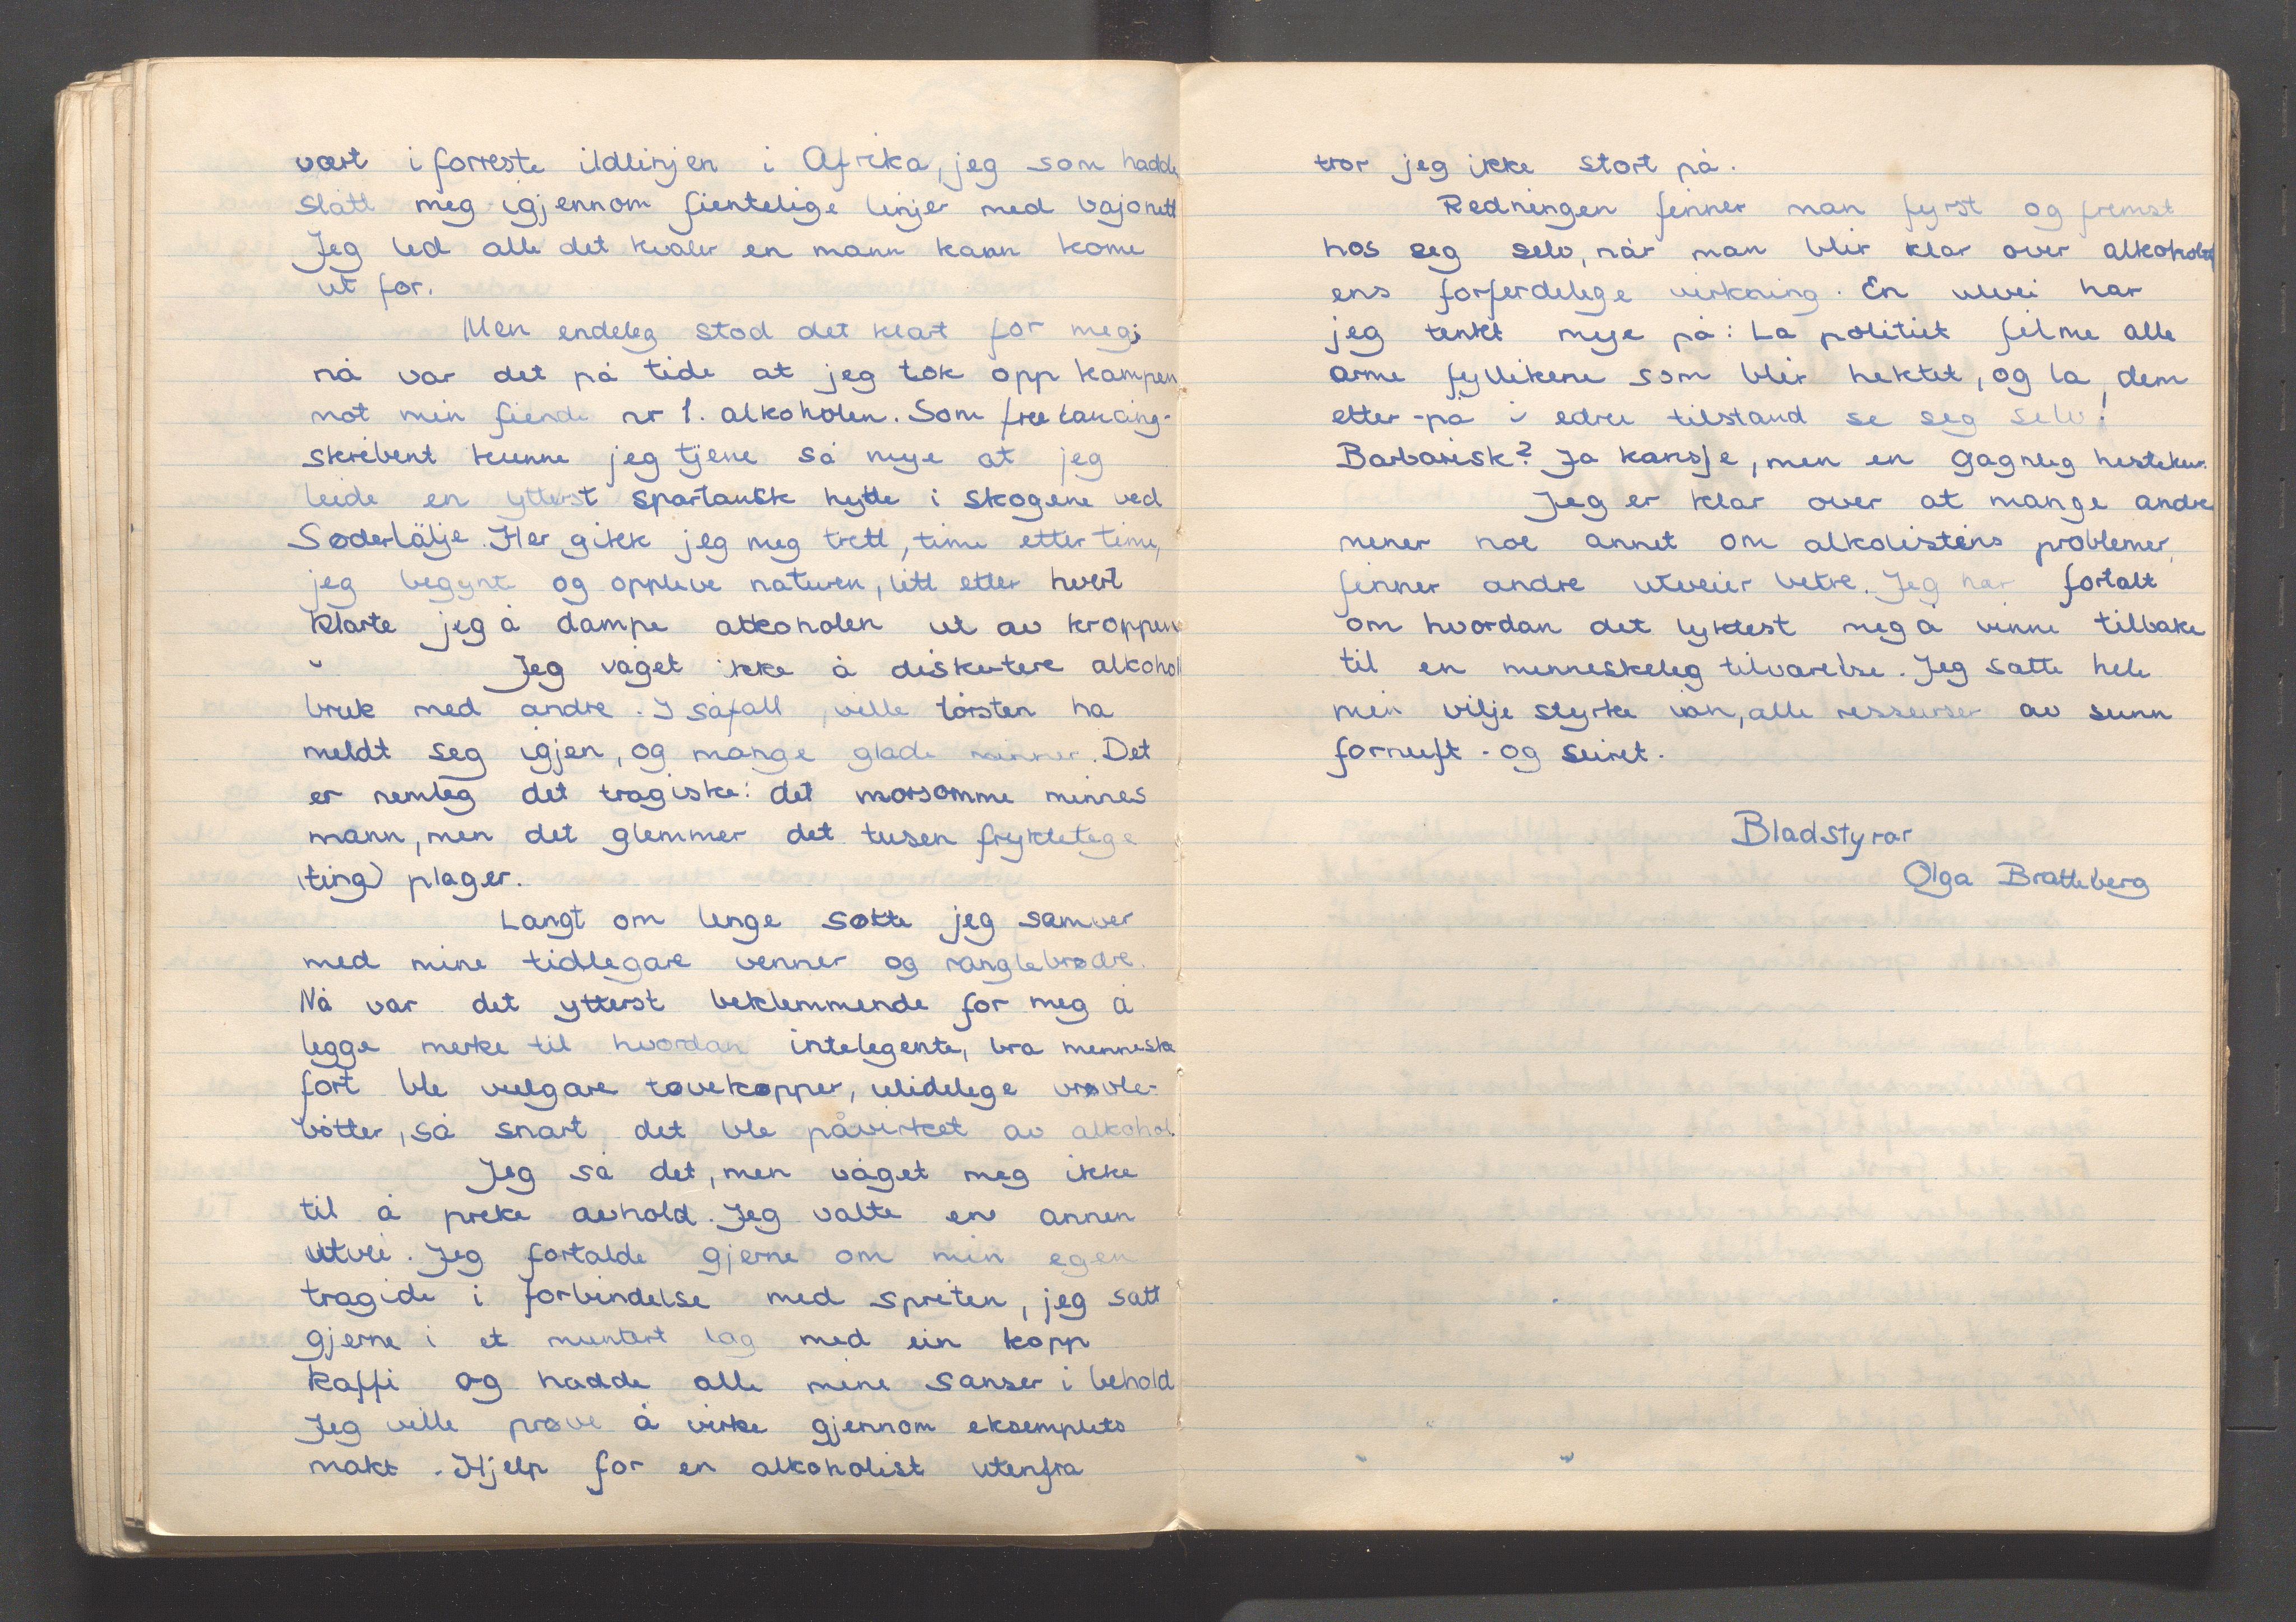 vært i forreste ildlinjen i Afrika, jeg som hadde
slått meg igjennom fientelige linjer med bajonett
Jeg led alle det kvaler en mann kann kome
ut for.
Men endeleg stod det klart for meg;
nå var det på tide at jeg tok opp kampen
mot min fiende nr 1. alkoholen. Som free lancing-
skribent kunne jeg tjene så mye at jeg
leide en ytterst spartansk hytte i skogene ved
Søderlälje. Her gikk jeg meg trett, time etter time,
jeg begynte og oppleve naturen, litt etter hvert
klarte jeg å dampe alkoholen ut av kroppen
Jeg våget ikke å diskutere alkohol
bruk med andre. I såfall, ville tørsten ha
meldt seg igjen, og mange glade minner. Det
er nemleg det tragiske: det morsomme minnes
mann, men det glemmer det tusen fryktelege
(ting) plager.
Langt om lenge søkte jeg samver
med mine tidlegare venner og ranglebrødre.
Nå var det ytterst beklemmende for meg å
legge merke til hvordan intelegente, bra menneske
fort ble vulgære tøvekopper, ulidelege vrøvle-
bøtter, så snart det ble påvirket av alkohol
Jeg så det, men våget meg ikke
til å preke avhold. Jeg valte en annen
utvei. Jeg fortalde gjerne om min egen
tragide i forbindelse med spriten, jeg satt
gjerne i et muntert lag med ein kopp
kaffi og hadde alle mine sanser i behold
Jeg ville prøve å virke gjennom eksemplets
makt. Hjelp for en alkoholist utenfra
tror jeg ikke stort på.
Redningen finner man fyrst og fremst
hos seg selv, når man blir klar over alkohol
ens forferdelege virkning. En utvei har
jeg tenkt mye på: La politiet filme alle
arme fyllikene som blir hektet, og la dem
etter-på i edru tilstand se seg selv!
Barbarisk? Ja kansje, men en gagnleg hestekur.
Jeg er klar over at mange andre
mener noe annet om alkolistens problemer,
finner andre utveier betre. Jeg har fortalt
om hvordan det lyktest meg å vinne tilbake
til en menneskeleg tilværelse. Jeg satte hele
min vilje styrke inn, alle ressurser av sunn
fornuft - og seiret.
Bladstyrar
Olga Bratteberg